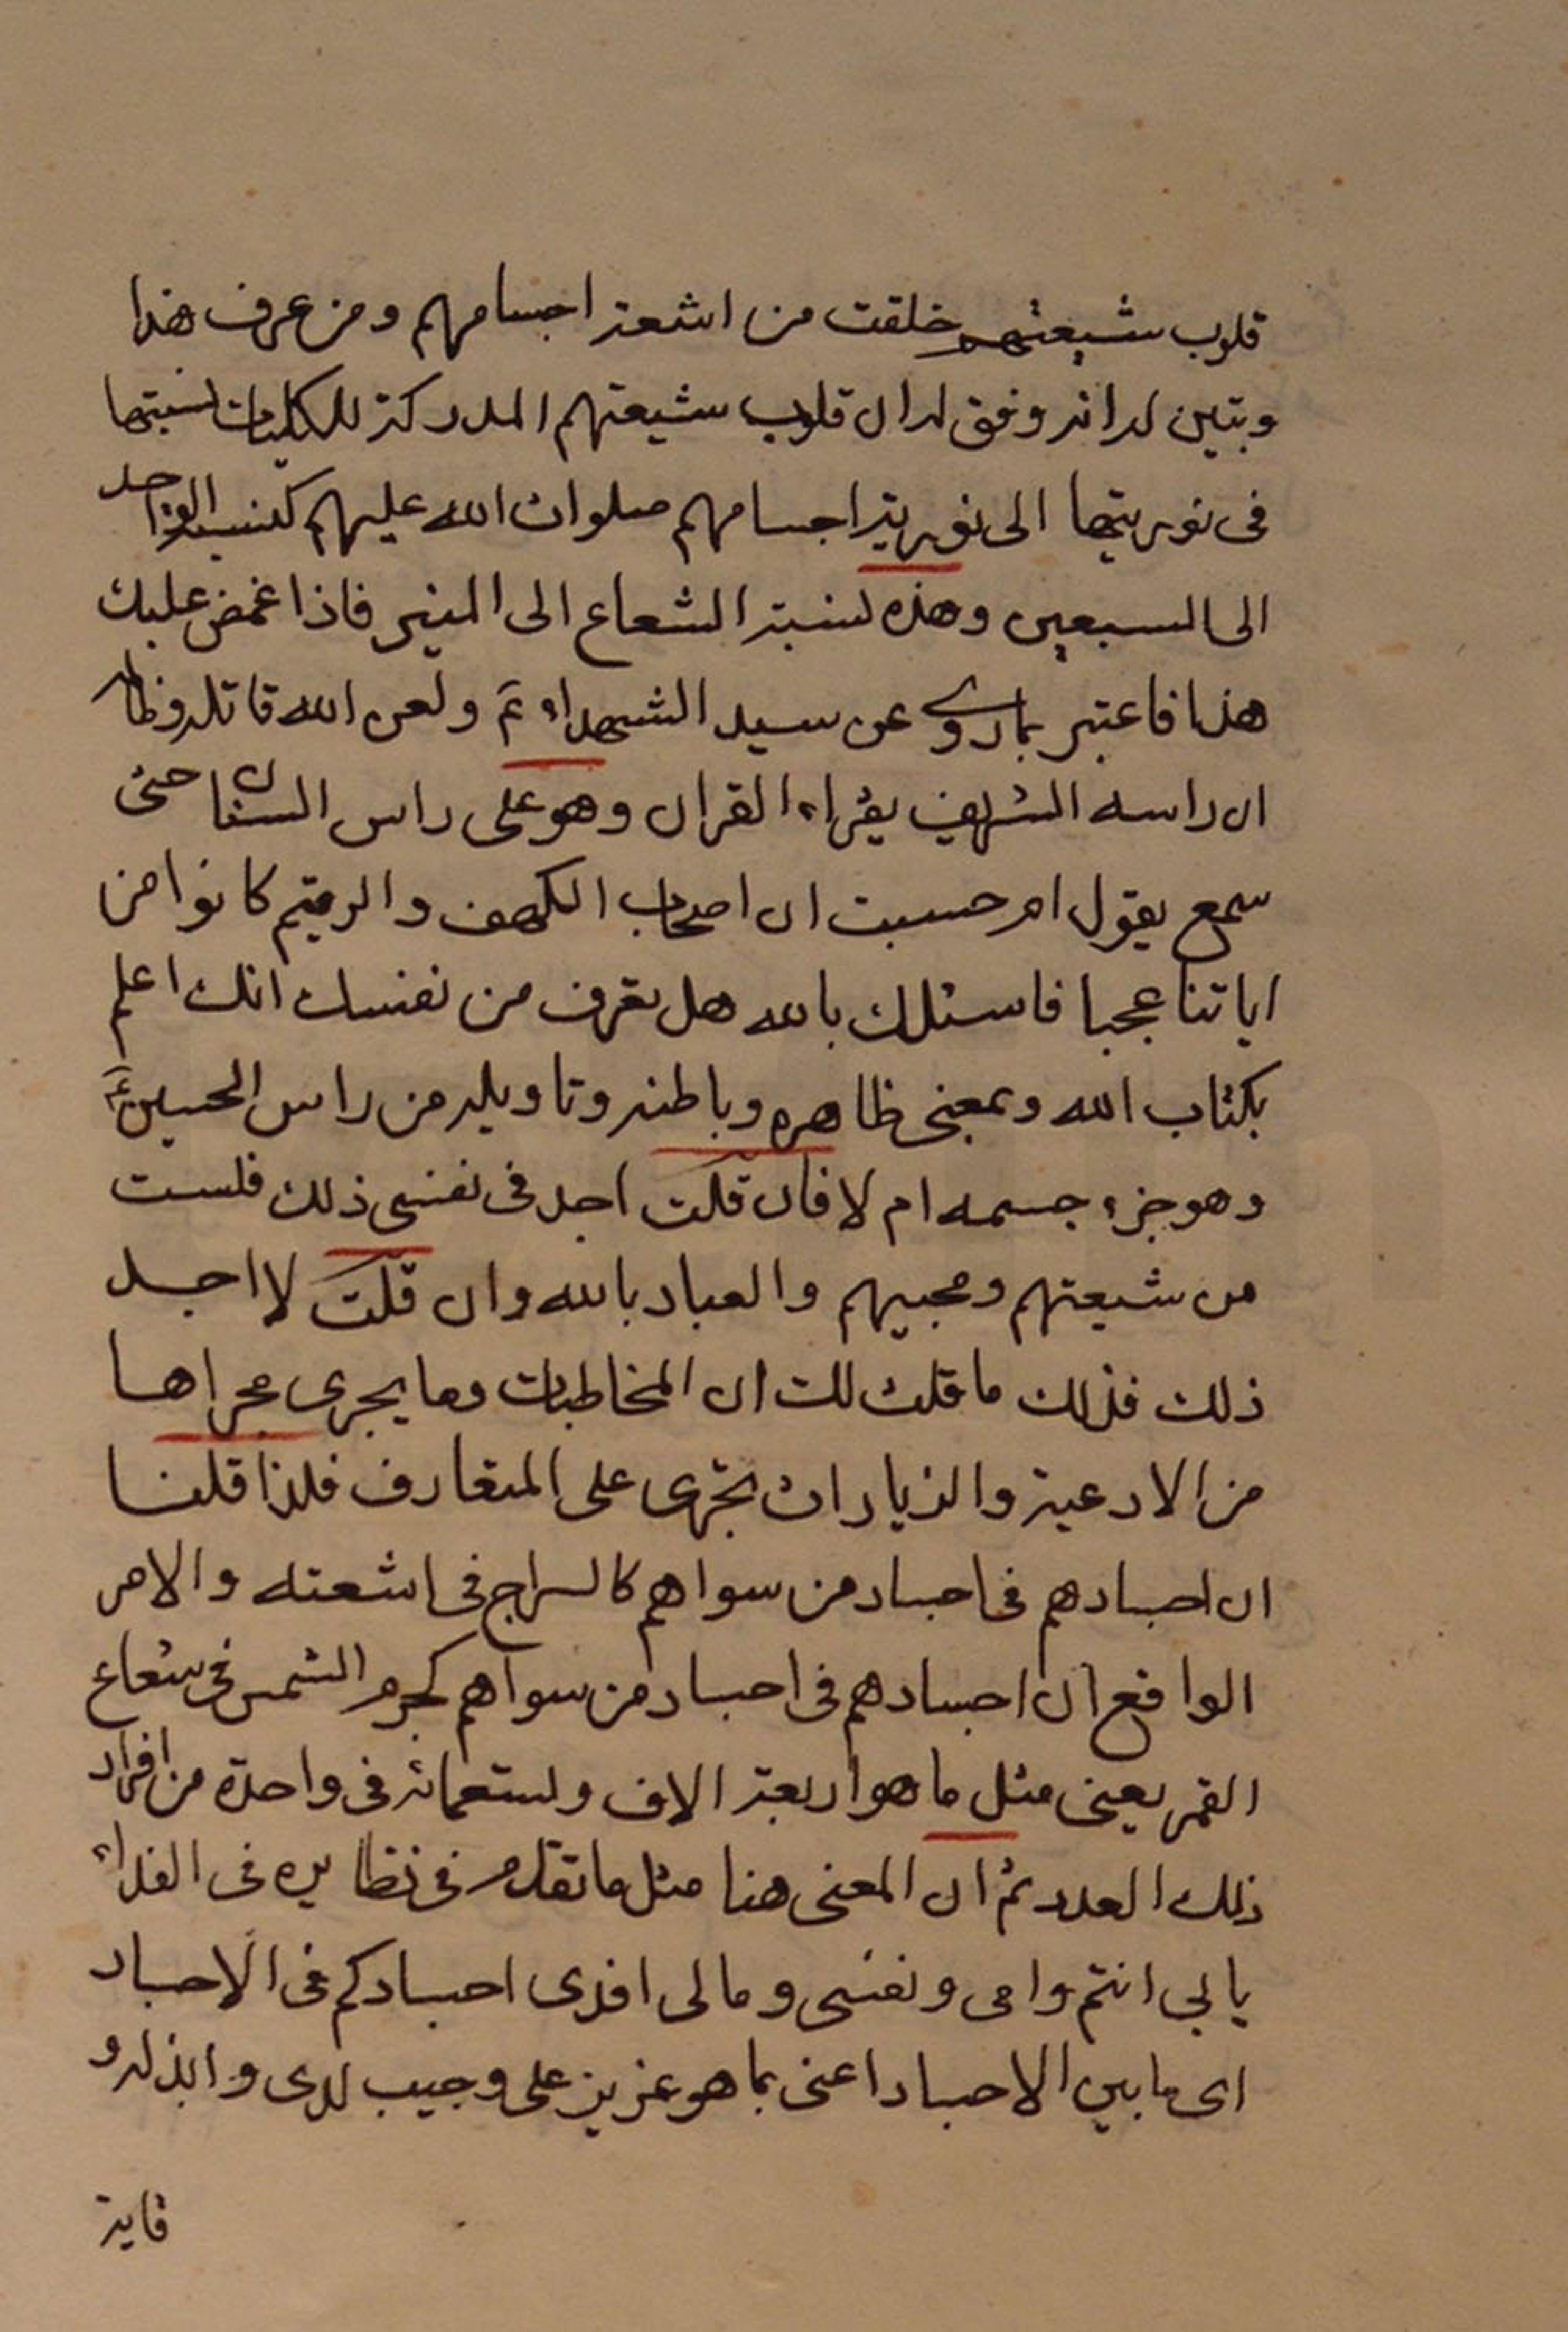 قلوب شيعتهم خلقت من اشعة اجسامهم ومن عرف هذا
وتبين له انه وفق له ان قلوب شيعتهم المدركة للكليات نسبتها
فى نوريتها الى نورية اجسامهم صلوات الله عليهم كنسبة الواحد
الى السبعين وهذه نسبة الشعاع الى المنير فاذا غمض عليك
هذا فاعتبر بما روى عن سيد الشهداء ع ولعن الله قاتله وظالمه
ان راسه الشريف يقراء القران وهو على راس السنان حتى
سمع يقول ام حسبت ان اصحاب الكهف والرقيم كانوا من
اياتنا عجبا فاسئلك بالله هل تعرف من نفسك انك اعلم
بكتاب الله وبمعنى ظاهره وباطنه وتاويله من راس الحسين ع
وهو جزء جسمه ام لا فان قلت اجد فى نفسى ذلك فلست
من شيعتهم ومحبيهم والعياذ بالله وان قلت لا اجد
ذلك فذلك ما قلت لك ان المخاطبات وما يجرى مجراها
من الادعية والزيارات تجرى على المتعارف فلذا قلنا
ان اجسادهم فى اجساد من سواهم كالسراج فى اشعته والامر
الواقع ان اجسادهم فى اجساد من سواهم كجرم الشمس فى شعاع
القمر يعنى مثل ما هو اربعة الاف وتسعمائة فى واحدة من افراد
ذلك العدد ثم ان المعنى هنا مثل ما تقدم فى نظايره فى الفداء
بابى انتم وامى ونفسى ومالى افدى اجسادكم فى الاجساد
اى ما بين الاجساد اعنى بما هو عزيز على وحبيب لدى وابذله و
قاية